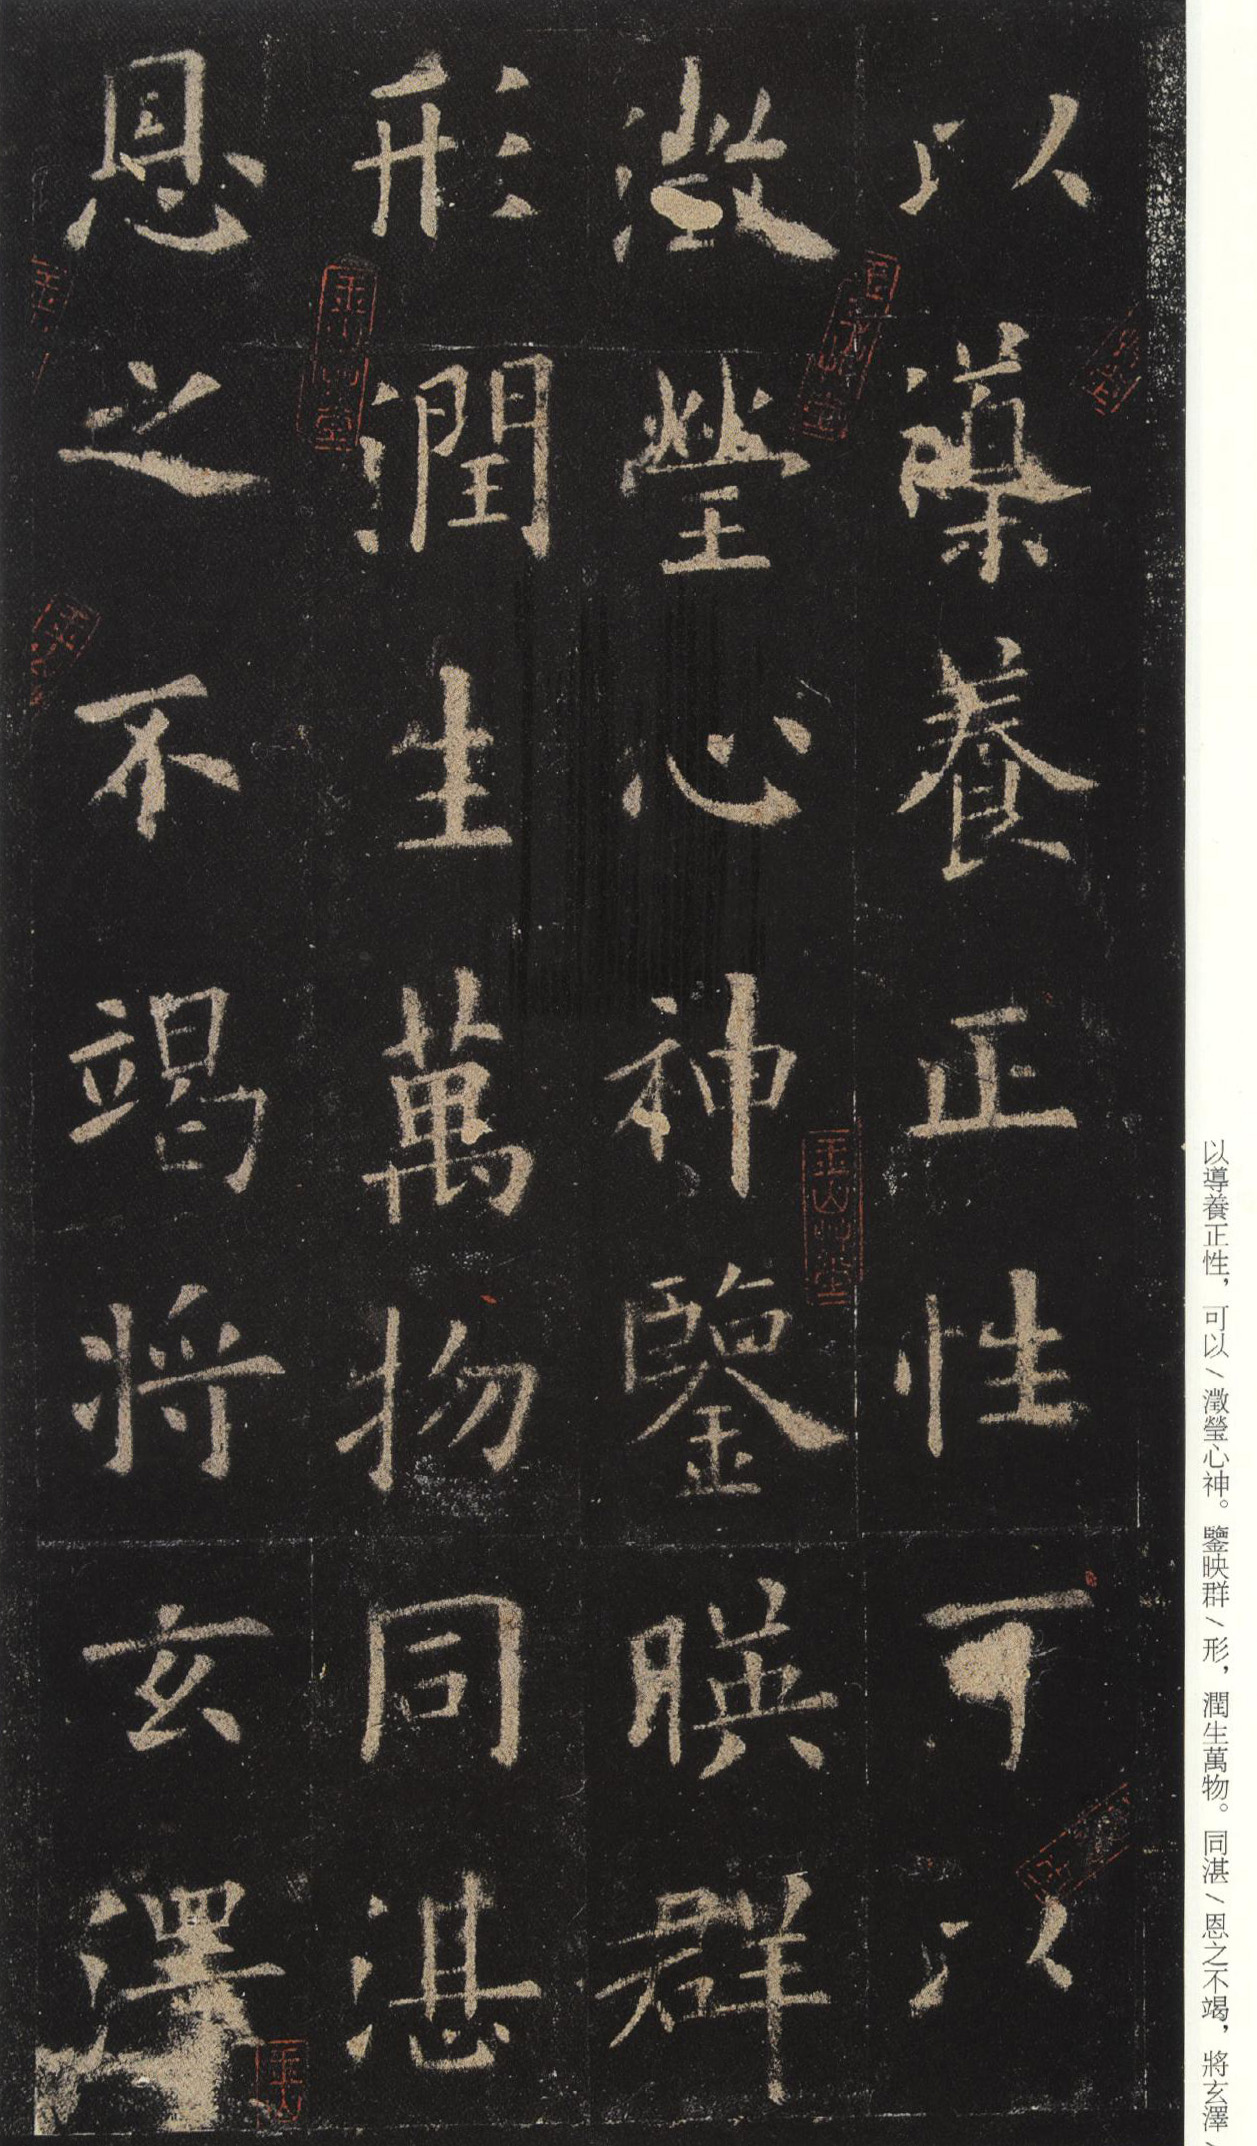 以導養正性可以
澂瑩心神鑒暎群
形潤生萬物同湛
恩之不竭将玄澤
以導養正性，可以/澂瑩心神。鑒映群/形，潤生萬物。同湛/恩之不竭，將玄澤/
玉山草堂